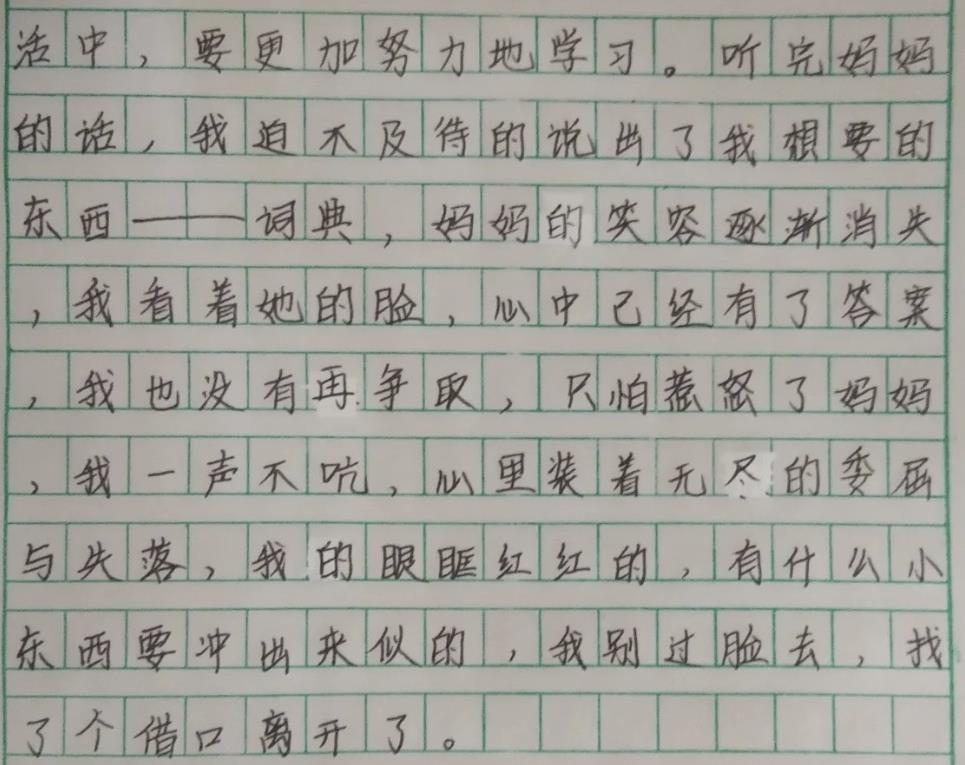 活中，要更加努力地学习。听完妈妈
的话，我迫不及待的说出了我想要的
东西——词典，妈妈的笑容逐渐消失
，我看着她的脸，心中已经有了答案
，我也没有再争取，只怕惹怒了妈妈
，我一声不吭，心里装着无尽的委屈
与失落，我的眼眶红红的，有什么小
东西要冲出来似的，我别过脸去，找
了个借口离开了。